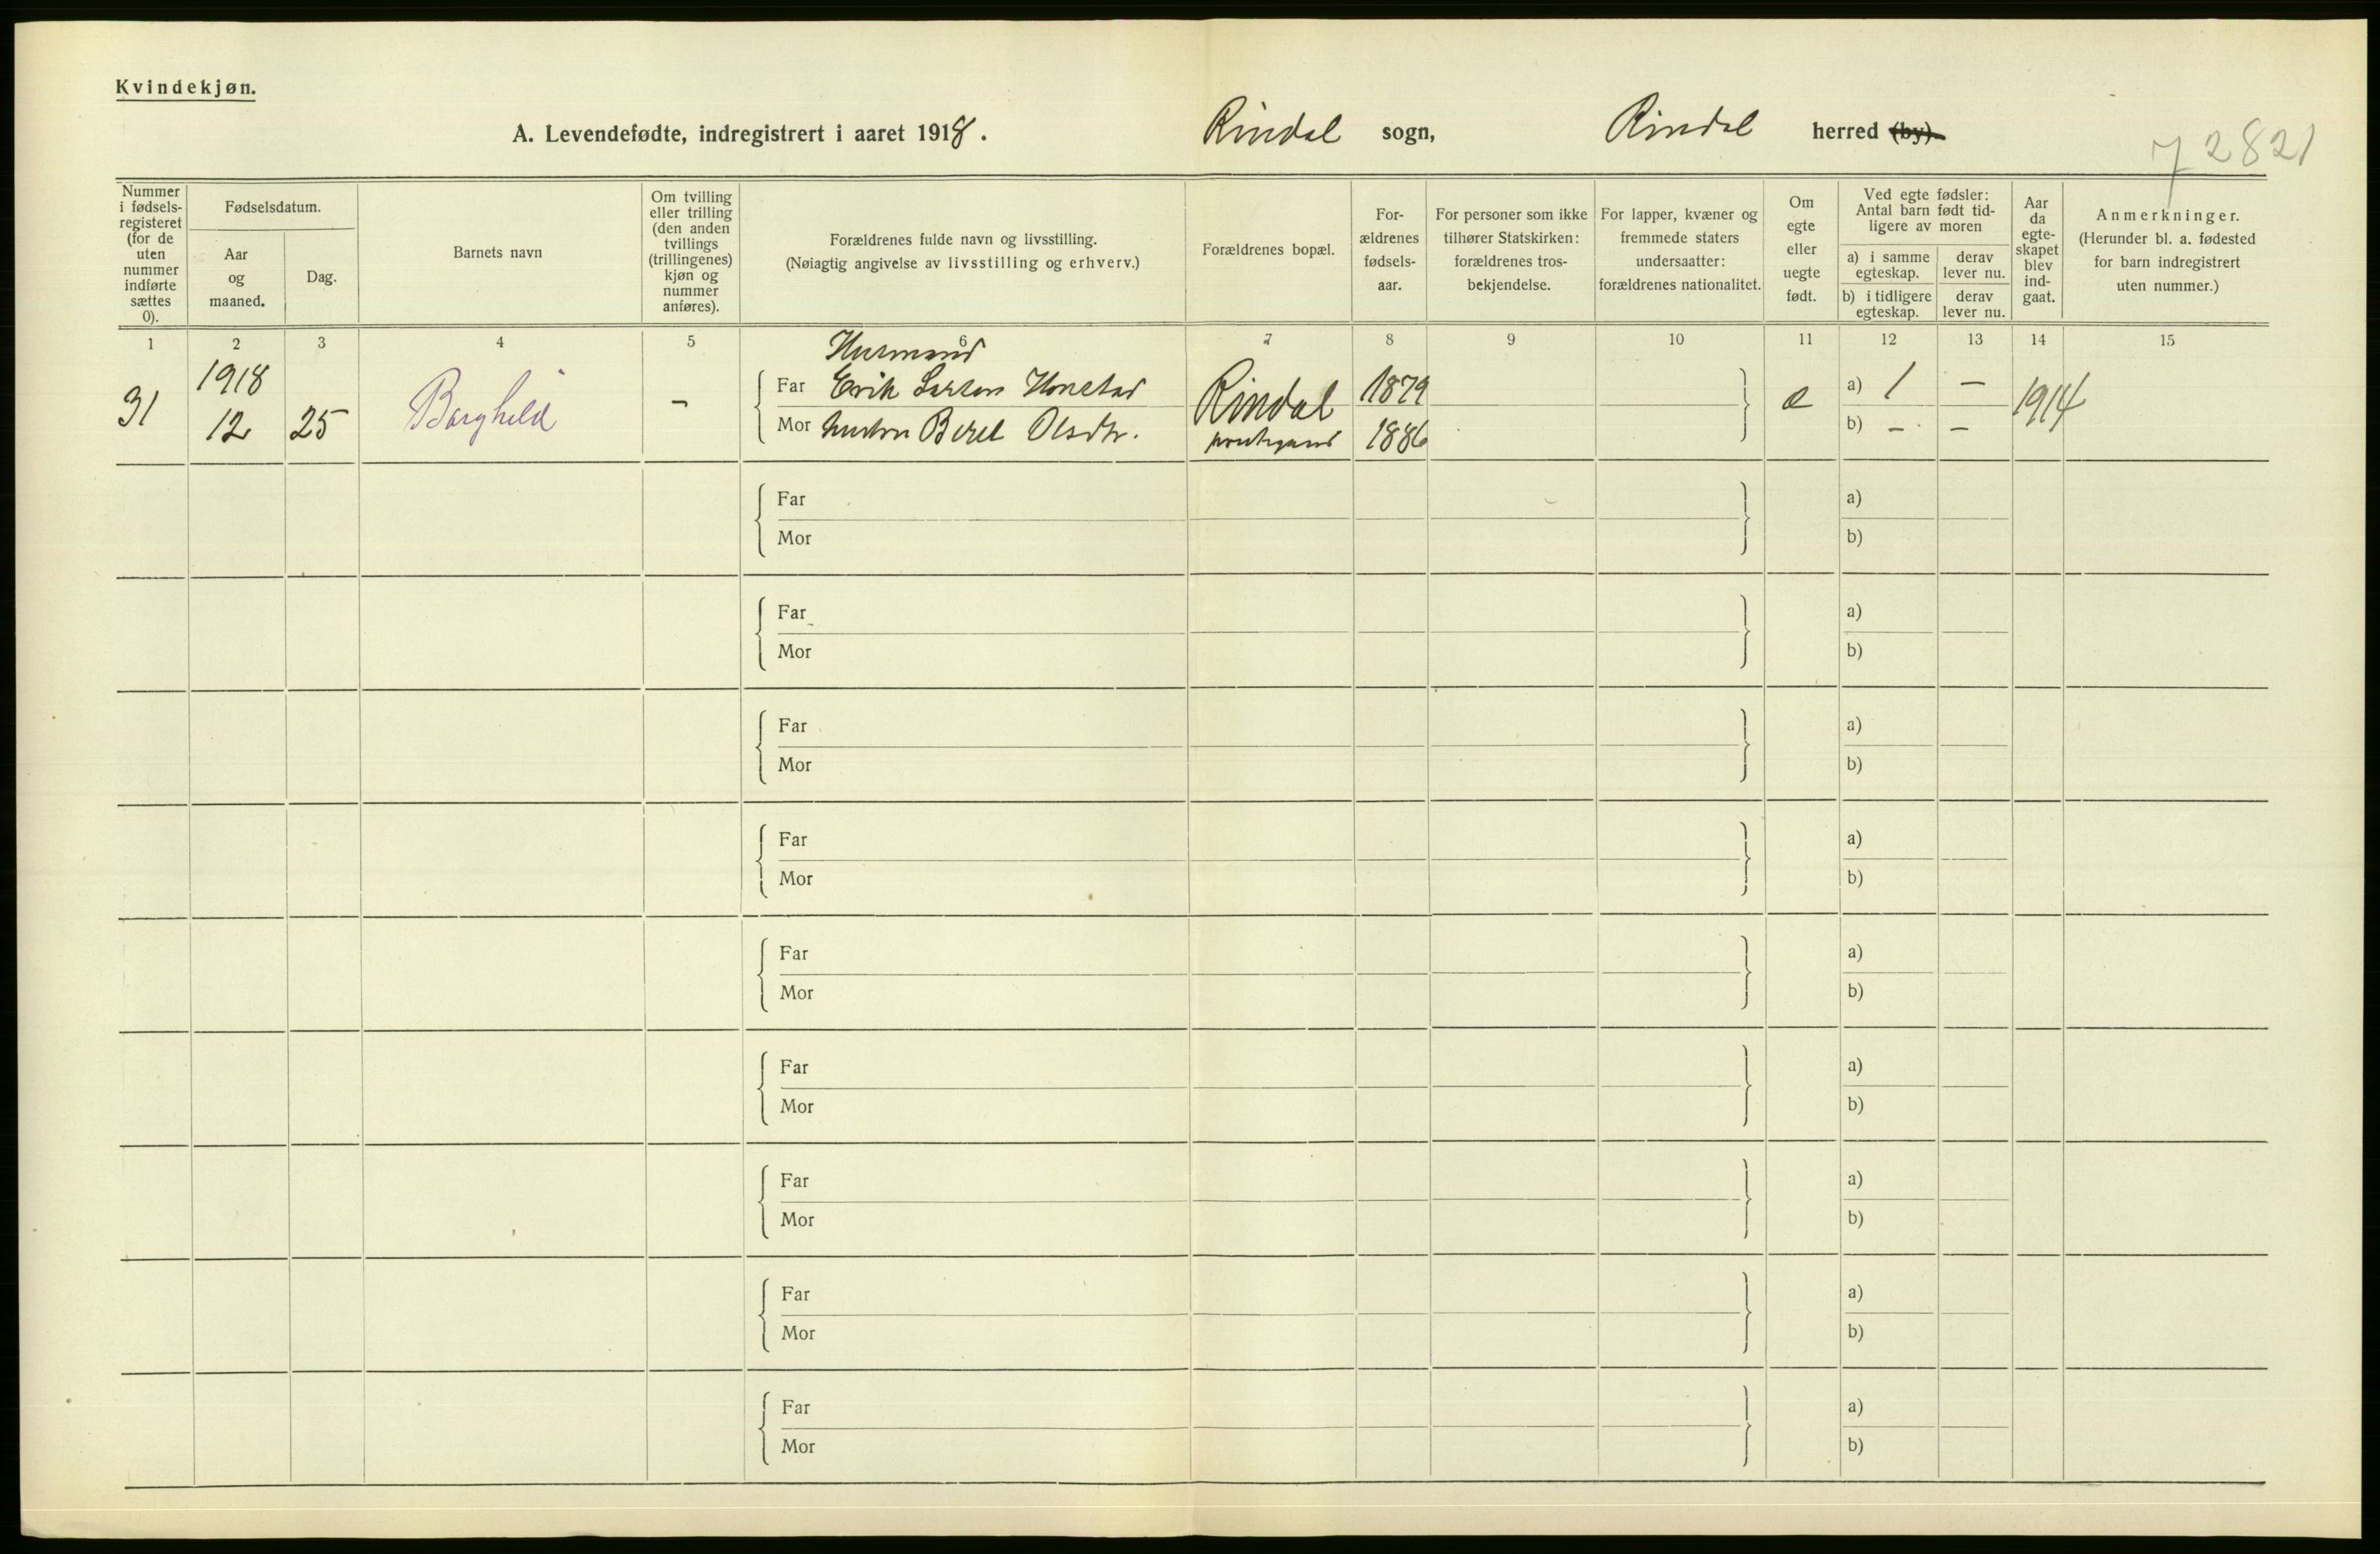 Kvindekjøn.
A. Levendefødte, indregistrert i aaret 1918. Rindal sogn, Rindal herred (by).
72821
Nummer i fødsels-registeret (for de uten nummer indførte sættes 0).
Fødselsdatum.
Aar og maaned.
Dag.
Barnets navn
Om tvilling eller trilling (den anden tvillings (trillingenes) kjøn og nummer anføres).
Forældrenes fulde navn og livsstilling.
(Nøiagtig angivelse av livsstilling og erhverv.)
Forældrenes bopæl.
For-ældrenes fødsels-aar.
For personer som ikke tilhører Statskirken: forældrenes tros-bekjendelse.
For lapper, kvæner og fremmede staters undersaatter: forældrenes nationalitet.
Om egte eller uegte født.
Ved egte fødsler: Antal barn født tid-ligere av moren
a) i samme egteskap.
derav lever nu.
b) i tidligere egteskap.
derav lever nu.
Aar da egte-skapet blev ind-gaat.
Anmerkninger.
(Herunder bl. a. fødested for barn indregistrert uten nummer.)
1 2 3 4 5 6 7 8 9 10 11 12 13 14 15
Husmand
31 1918 12 25 Borghild -
Far Erik Larsen Honstad
Mor hustru Beret Olsdtr.
Rindal
1879
1886
e
a) 1 -
b) - -
1914
Far a)
Mor b)
Far a)
Mor b)
Far a)
Mor b)
Far a)
Mor b)
Far a)
Mor b)
Far a)
Mor b)
Far a)
Mor b)
Far a)
Mor b)
Far a)
Mor b)